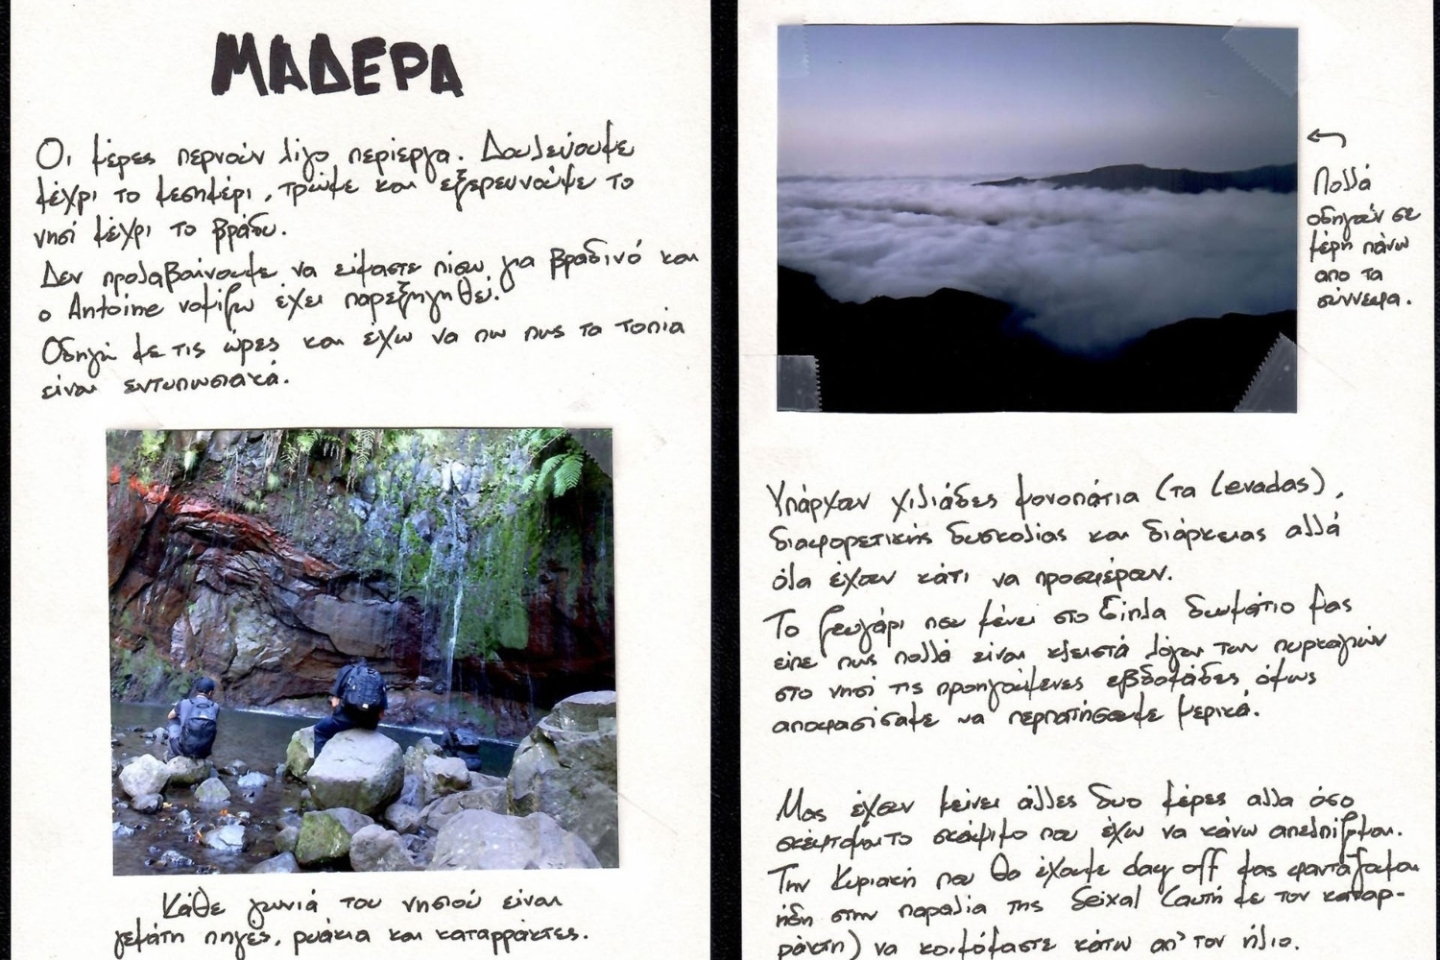 ΜΑΔΕΡΑ
Οι μέρες περνούν λίγο περίεργα. Δουλεύουμε
μέχρι το μεσημέρι, τρώμε και εξερευνούμε το
νησί μέχρι το βράδυ.
Δεν προλαβαίνουμε να είμαστε πίσω για βραδινό και
ο Antoine νομίζω έχει παρεξηγηθεί.
Οδηγώ με τις ώρες και έχω να πω πως τα τοπία
είναι εντυπωσιακά.
Κάθε γωνιά του νησιού είναι
γεμάτη πηγές, ρυάκια και καταρράκτες.
Πολλά
οδηγούν σε
μέρη πάνω
απο τα
σύννεφα.
Υπάρχουν χιλιάδες μονοπάτια (τα Levadas),
διαφορετικής δυσκολίας και διάρκειας αλλά
όλα έχουν κάτι να προσφέρουν.
Το ζευγάρι που μένει στο δίπλα δωμάτιο μας
είπε πως πολλά είναι κλειστά λόγω των πυρκαγιών
στο νησί τις προηγούμενες εβδομάδες όμως
αποφασίσαμε να περπατήσουμε μερικά.
Μας έχουν μείνει άλλες δυο μέρες αλλα όσο
σκέφτομαι το σκάψιμο που έχω να κάνω απελπίζομαι.
Την Κυριακή που θα έχουμε day off μας φαντάζομαι
ήδη στην παραλία της Seixal (αυτή με τον καταρ-
ράκτη) να κοιμόμαστε κάτω απ' τον ήλιο.